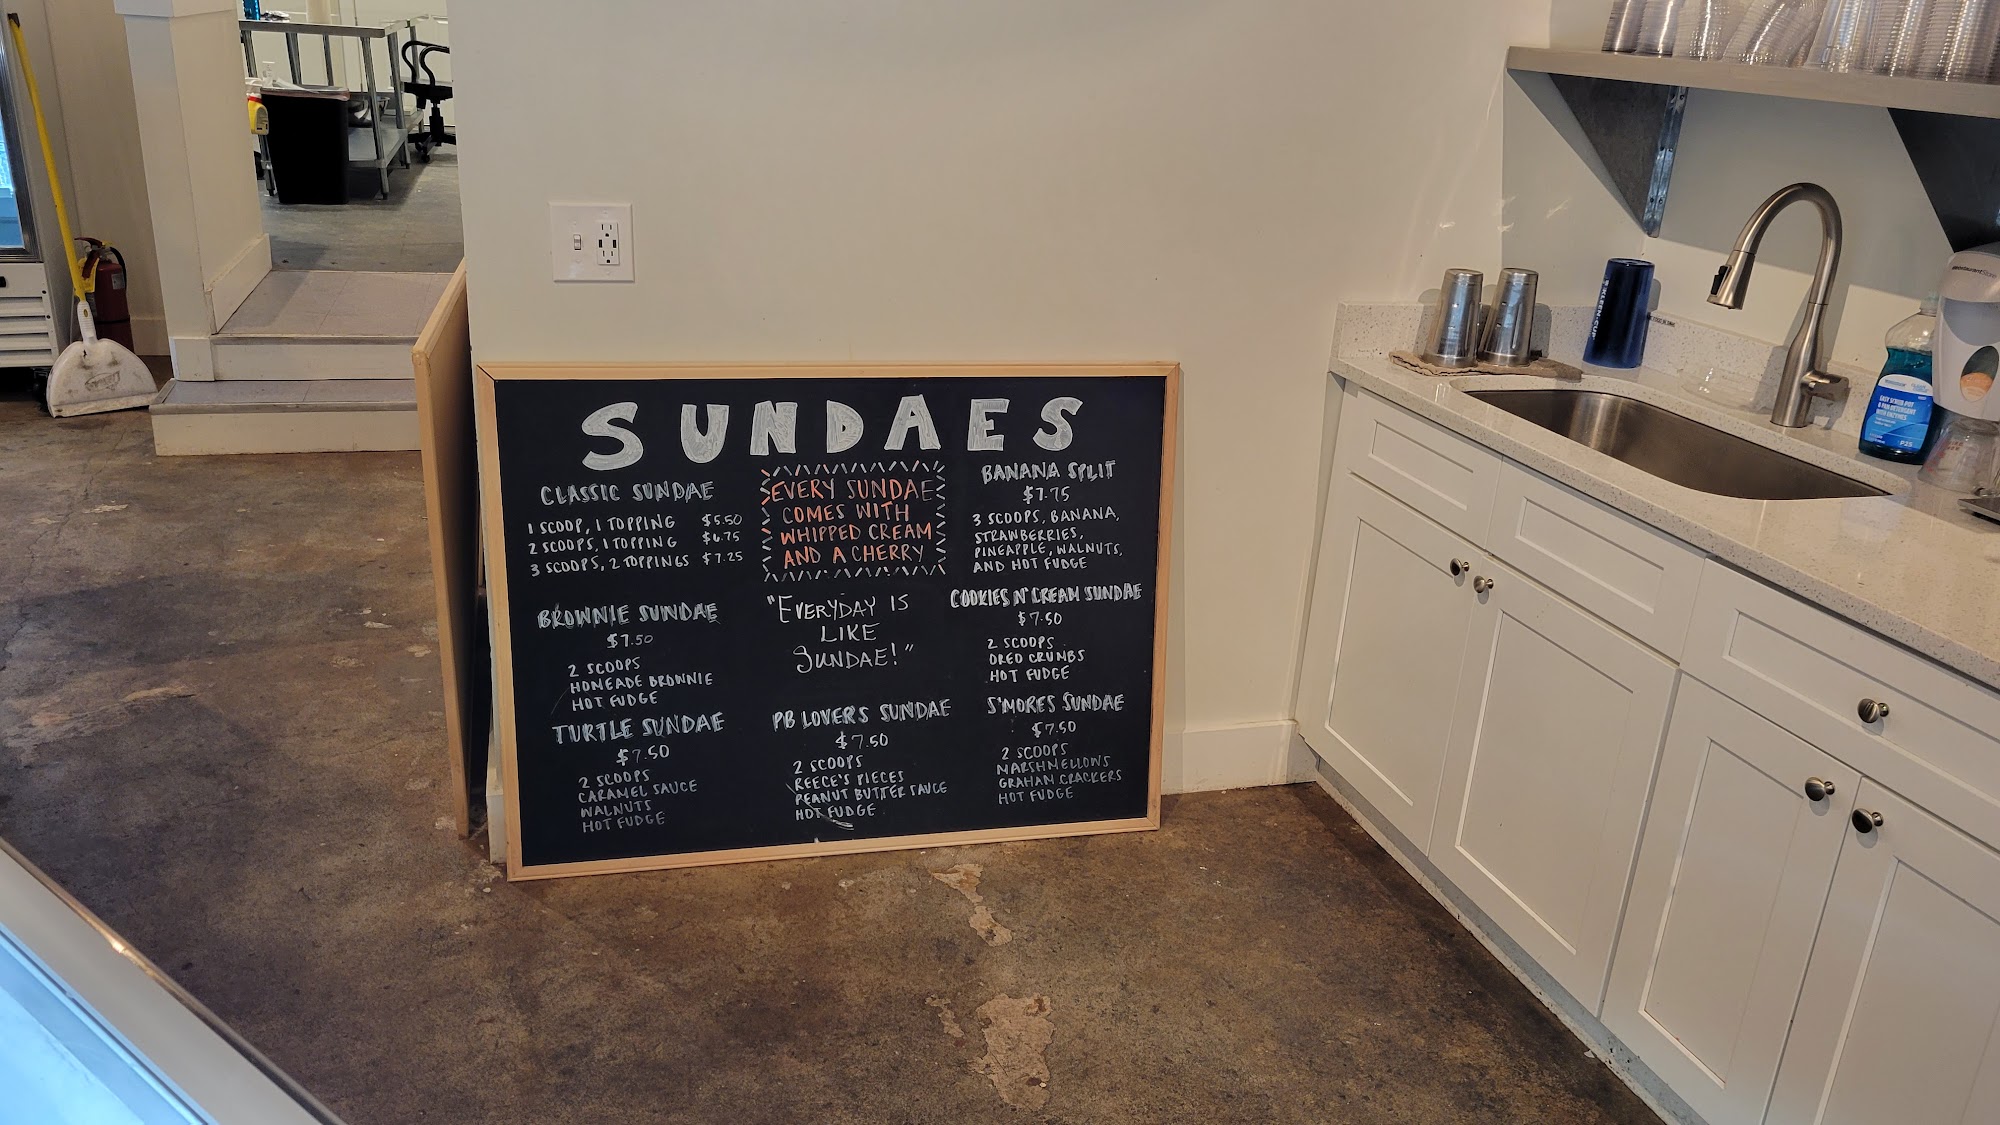 SUNDAES
CLASSIC SUNDAE
1 SCOOP, 1 TOPPING $5.50
2 SCOOPS, 1 TOPPING $6.75
3 SCOOPS, 2 TOPPINGS $7.25
BROWNIE SUNDAE
$7.50
2 SCOOPS
HOMEADE BROWNIE
HOT FUDGE
TURTLE SUNDAE
$7.50
2 SCOOPS
CARAMEL SAUCE
WALNUTS
HOT FUDGE
EVERY SUNDAE
COMES WITH
WHIPPED CREAM
AND A CHERRY
"EVERYDAY IS
LIKE
SUNDAE!"
PB LOVERS SUNDAE
$7.50
2 SCOOPS
REECE'S PIECES
PEANUT BUTTER SAUCE
HOT FUDGE
BANANA SPLIT
$7.75
3 SCOOPS, BANANA,
STRAWBERRIES,
PINEAPPLE, WALNUTS,
AND HOT FUDGE
COOKIES N' CREAM SUNDAE
$7.50
2 SCOOPS
OREO CRUMBS
HOT FUDGE
S'MORES SUNDAE
$7.50
2 SCOOPS
MARSHMELLOWS
GRAHAM CRACKERS
HOT FUDGE
EASY SCRUB POT
& PAN DETERGENT
WITH ENZYMES